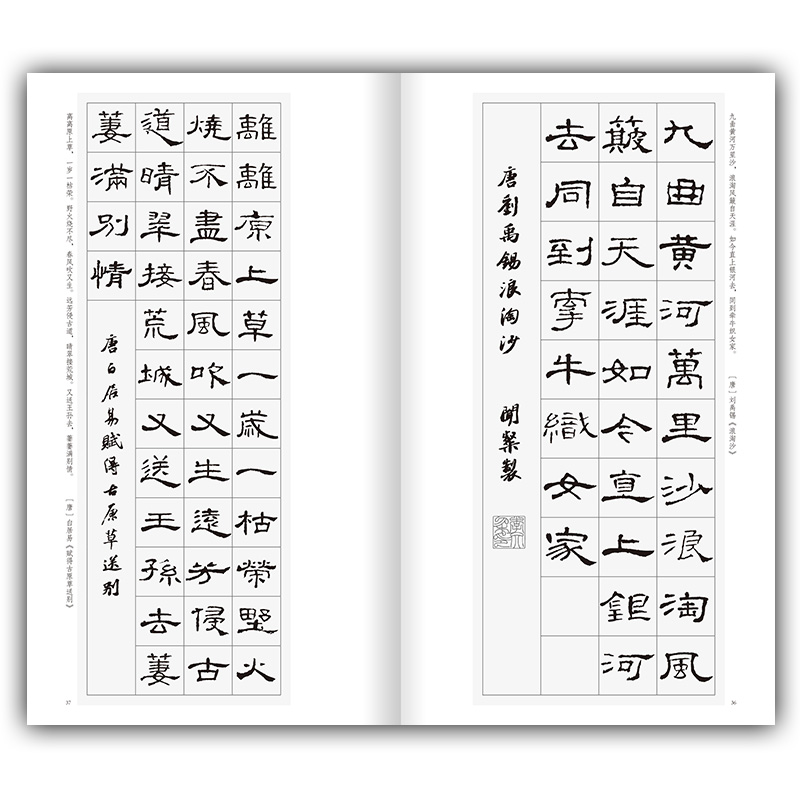 九曲黄河万里沙，浪淘风簸自天涯。如今直上银河去，同到牵牛织女家。 〔唐〕刘禹锡《浪淘沙》
九曲黃河萬里沙浪淘風
簸自天涯如今直上銀河
去同到牽牛織女家
唐劉禹錫浪淘沙 聞製
36
離離原上草一歲一枯榮野火
燒不盡春風吹又生遠芳侵古
道晴翠接荒城又送王孫去萋
萋滿別情
唐白居易賦得古原草送別
离离原上草，一岁一枯荣。野火烧不尽，春风吹又生。远芳侵古道，晴翠接荒城。又送王孙去，萋萋满别情。 〔唐〕白居易《赋得古原草送别》
37